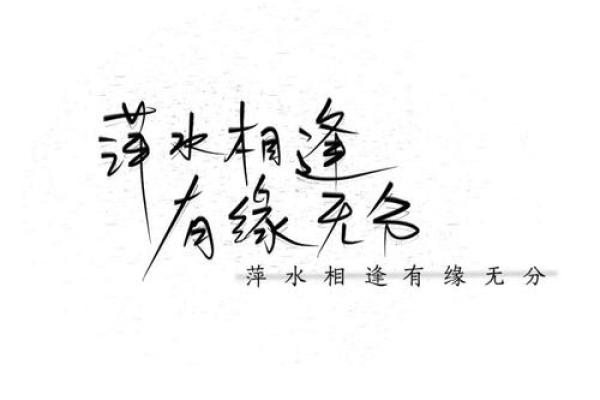 萍水相逢
有缘无分
萍水相逢有缘无分